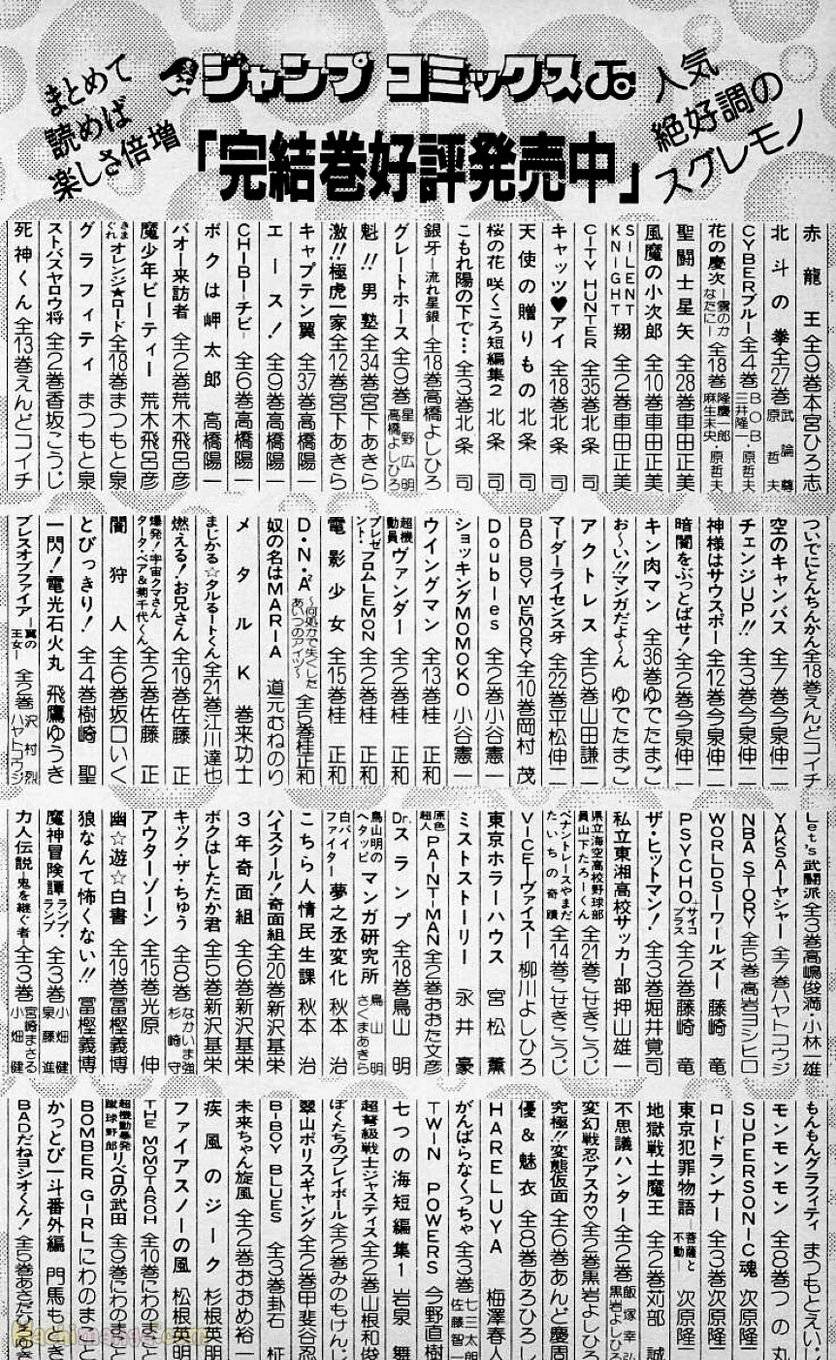 まとめて
読めば
楽しさ倍増
ジャンプ コミックス
人気
絶好調の
スグレモノ
「完結巻好評発売中」
赤龍王 全9巻 本宮ひろ志
北斗の拳 全27巻 武論尊 原哲夫
CYBERブルー 全4巻 BOB・原哲夫 三井隆一
花の慶次―雲のかなたに― 全18巻 隆慶一郎・原哲夫 麻生未央
聖闘士星矢 全28巻 車田正美
風魔の小次郎 全10巻 車田正美
SILENT KNIGHT 翔 全2巻 車田正美
CITY HUNTER 全35巻 北条司
キャッツ♥アイ 全18巻 北条司
天使の贈りもの 北条司
桜の花 咲くころ 短編集2 北条司
こもれ陽の下で… 全3巻 北条司
銀牙―流れ星 銀― 全18巻 高橋よしひろ
グレートホース 全9巻 星野広明 高橋よしひろ
魁!!男塾 全34巻 宮下あきら
激!!極虎一家 全12巻 宮下あきら
キャプテン翼 全37巻 高橋陽一
エース! 全9巻 高橋陽一
CHIBI―チビ― 全6巻 高橋陽一
ボクは岬太郎 高橋陽一
バオー来訪者 全2巻 荒木飛呂彦
魔少年ビーティー 荒木飛呂彦
きまぐれオレンジ★ロード 全18巻 まつもと泉
グラフィティ まつもと泉
ストバスヤロウ将 全2巻 香坂こうじ
死神くん 全13巻 えんどコイチ
ついでにとんちんかん 全18巻 えんどコイチ
空のキャンバス 全7巻 今泉伸二
チェンジUP!! 全3巻 今泉伸二
神様はサウスポー 全12巻 今泉伸二
暗闇をぶっとばせ! 全2巻 今泉伸二
キン肉マン 全36巻 ゆでたまご
お〜い!!マンガだよ〜ん ゆでたまご
アクトレス 全5巻 山田謙二
マーダーライセンス牙 全22巻 平松伸二
BAD BOY MEMORY 全10巻 岡村茂
Doubles 全2巻 小谷憲一
ショッキングMOMOKO 小谷憲一
ウイングマン 全13巻 桂正和
超機動員ヴァンダー 全2巻 桂正和
プレゼント・フロムLEMON 全2巻 桂正和
電影少女 全15巻 桂正和
D・N・A² 〜何処かで失くしたあいつのアイツ〜 全5巻 桂正和
奴の名はMARIA 道元むねのり
メタルK 巻来功士
まじかる☆タルるートくん 全21巻 江川達也
燃える!お兄さん 全19巻 佐藤正
爆発!宇宙クマさん タータ・ベア&菊千代くん 全2巻 佐藤正
闇狩人 全6巻 坂口いく
とびっきり! 全4巻 樹崎聖
一閃!電光石火丸 飛鷹ゆうき
ブレスオブファイア―翼の王女― 全2巻 沢村烈 ハヤトコウジ
Let's武闘派 全3巻 高嶋俊満 小林一雄
YAKSA―ヤシャー 全7巻 ハヤトコウジ
NBA STORY 全5巻 高岩ヨシヒロ
WORLDS―ワールズ― 藤崎竜
PSYCHO+ サイコプラス 全2巻 藤崎竜
ザ・ヒットマン! 全3巻 堀井覚司
私立東湘高校サッカー部 押山雄一
県立海空高校野球部員山下たろーくん 全21巻 こせきこうじ
ペナントレース やまだたいちの奇蹟 全14巻 こせきこうじ
VICE―ヴァイス― 柳川よしひろ
東京ホラーハウス 宮松薫
ミストストーリー 永井豪
原色超人PAINT-MAN 全2巻 おおた文彦
Dr.スランプ 全18巻 鳥山明
鳥山明のヘタッピマンガ研究所 鳥山明 さくまあきら
白バイファイター 夢之丞変化 秋本治
こちら人情民生課 秋本治
ハイスクール!奇面組 全20巻 新沢基栄
3年奇面組 全6巻 新沢基栄
ボクはしたたか君 全5巻 新沢基栄
キック・ザ・ちゅう 全8巻 なかいま強 杉崎守
アウターゾーン 全15巻 光原伸
幽☆遊☆白書 全19巻 冨樫義博
狼なんて怖くない!! 冨樫義博
魔神冒険譚ランプ・ランプ 全3巻 小畑健 泉藤進
力人伝説―鬼を継ぐ者― 全3巻 宮崎まさる 小畑健
もんもんグラフィティ まつもとえいじ
モンモンモン 全8巻 つの丸
SUPERSONIC魂 次原隆二
ロードランナー 全3巻 次原隆二
東京犯罪物語―菩薩と不動 次原隆二
地獄戦士魔王 全2巻 苅部誠
不思議ハンター 全2巻 飯塚幸弘 黒岩よしひろ
変幻戦忍アスカ♡ 全2巻 黒岩よしひろ
究極!!変態仮面 全6巻 あんど慶周
優&魅衣 全8巻 あろひろし
HARELUYA 梅澤春人
がんばらなくっちゃ 全3巻 七三太朗 佐藤智一
TWIN POWERS 今野直樹
七つの海 短編集1 岩泉舞
超弩級戦士ジャスティス 全2巻 山根和俊
ぼくたちのプレイボール 全2巻 みのもけんじ
翠山ポリスギャング 全2巻 甲斐谷忍
B・BOY BLUES 全3巻 卦石柾
未来ちゃん旋風 全2巻 おおめ裕一
疾風のジーク 杉根英朋
ファイアスノーの風 松根英明
THE MOMOTAROH 全10巻 にわのまこと
超機動暴発蹴球野郎 リベロの武田 全9巻 にわのまこと
BOMBER GIRL にわのまこと
かっとび一斗番外編 門馬もとき
BADだねヨシオくん! 全5巻 あさだひろゆき